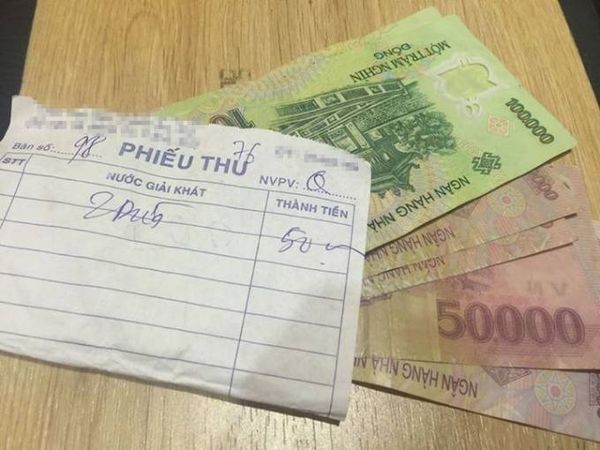 Bàn số: 98 PHIẾU THU 76
NVPV: Q
STT NƯỚC GIẢI KHÁT THÀNH TIỀN
2 Dừa 50
MỘT TRĂM NGHÌN
ĐỒNG
100000
NGÂN HÀNG NHÀ
NGÂN HÀNG NHÀ
NGÂN HÀNG
VN
50000
NGÂN HÀNG NHÀ NƯỚC